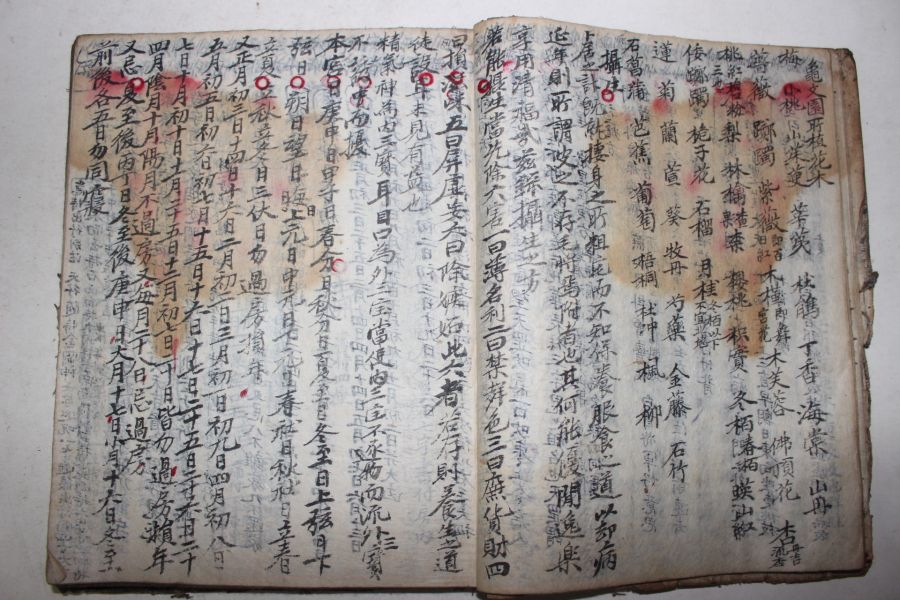 龜文園所植花木
梅 小桃 茱萸 杜鵑 丁香 海棠 山丹 杏
薔薇 躑躅 紫薇 木槿 木芙蓉 佛頂花
梨 林檎 櫻桃 枳實 冬栢 春栢 映山紅
倭躑躅 梔子花 石榴 月桂
蓮 菊 蘭 萱 葵 牧丹 芍藥 金藤 石竹
石菖蒲 芭蕉 葡萄 梧桐 杜冲 楓 柳
攝生
卜居之計旣能棲身之所粗完而不知保養服食之道以却病
延年則所謂皮之不存毛將焉附者也其何能優閒逸樂
享用淸福哉玆錄攝生之方
若能攝生當先除六害一曰薄名利二曰禁聲色三曰廉貨財四
曰損滋味五曰屛虛妄六曰除嫉妬此六者若存則養生之道
徒設耳未見有益也
精氣神爲內三寶耳目口爲外三寶當使內三宝不逐物而流外三寶
不誘中而擾
本命日庚申日甲子日春分日秋分日夏至日冬至日上弦日下
弦日朔日望日晦日上元日中元日下元日春社日秋社日立春
立夏立秋立冬日三伏日勿過房損壽
又正月初三日十四日十六日二月初二日三月初一日初九日四月初八日
五月初五日初六日初七日十五日十六日十七日二十五日二十六日二十
七日十月初十日十一月二十五日十二月初七日二十日皆勿過房損年
四月陰月十月陽月不過房又每月二十八日忌過房
又忌夏至後丙丁日冬至後庚申日大月十七日小月十六日夏至
前後各五日勿同寢